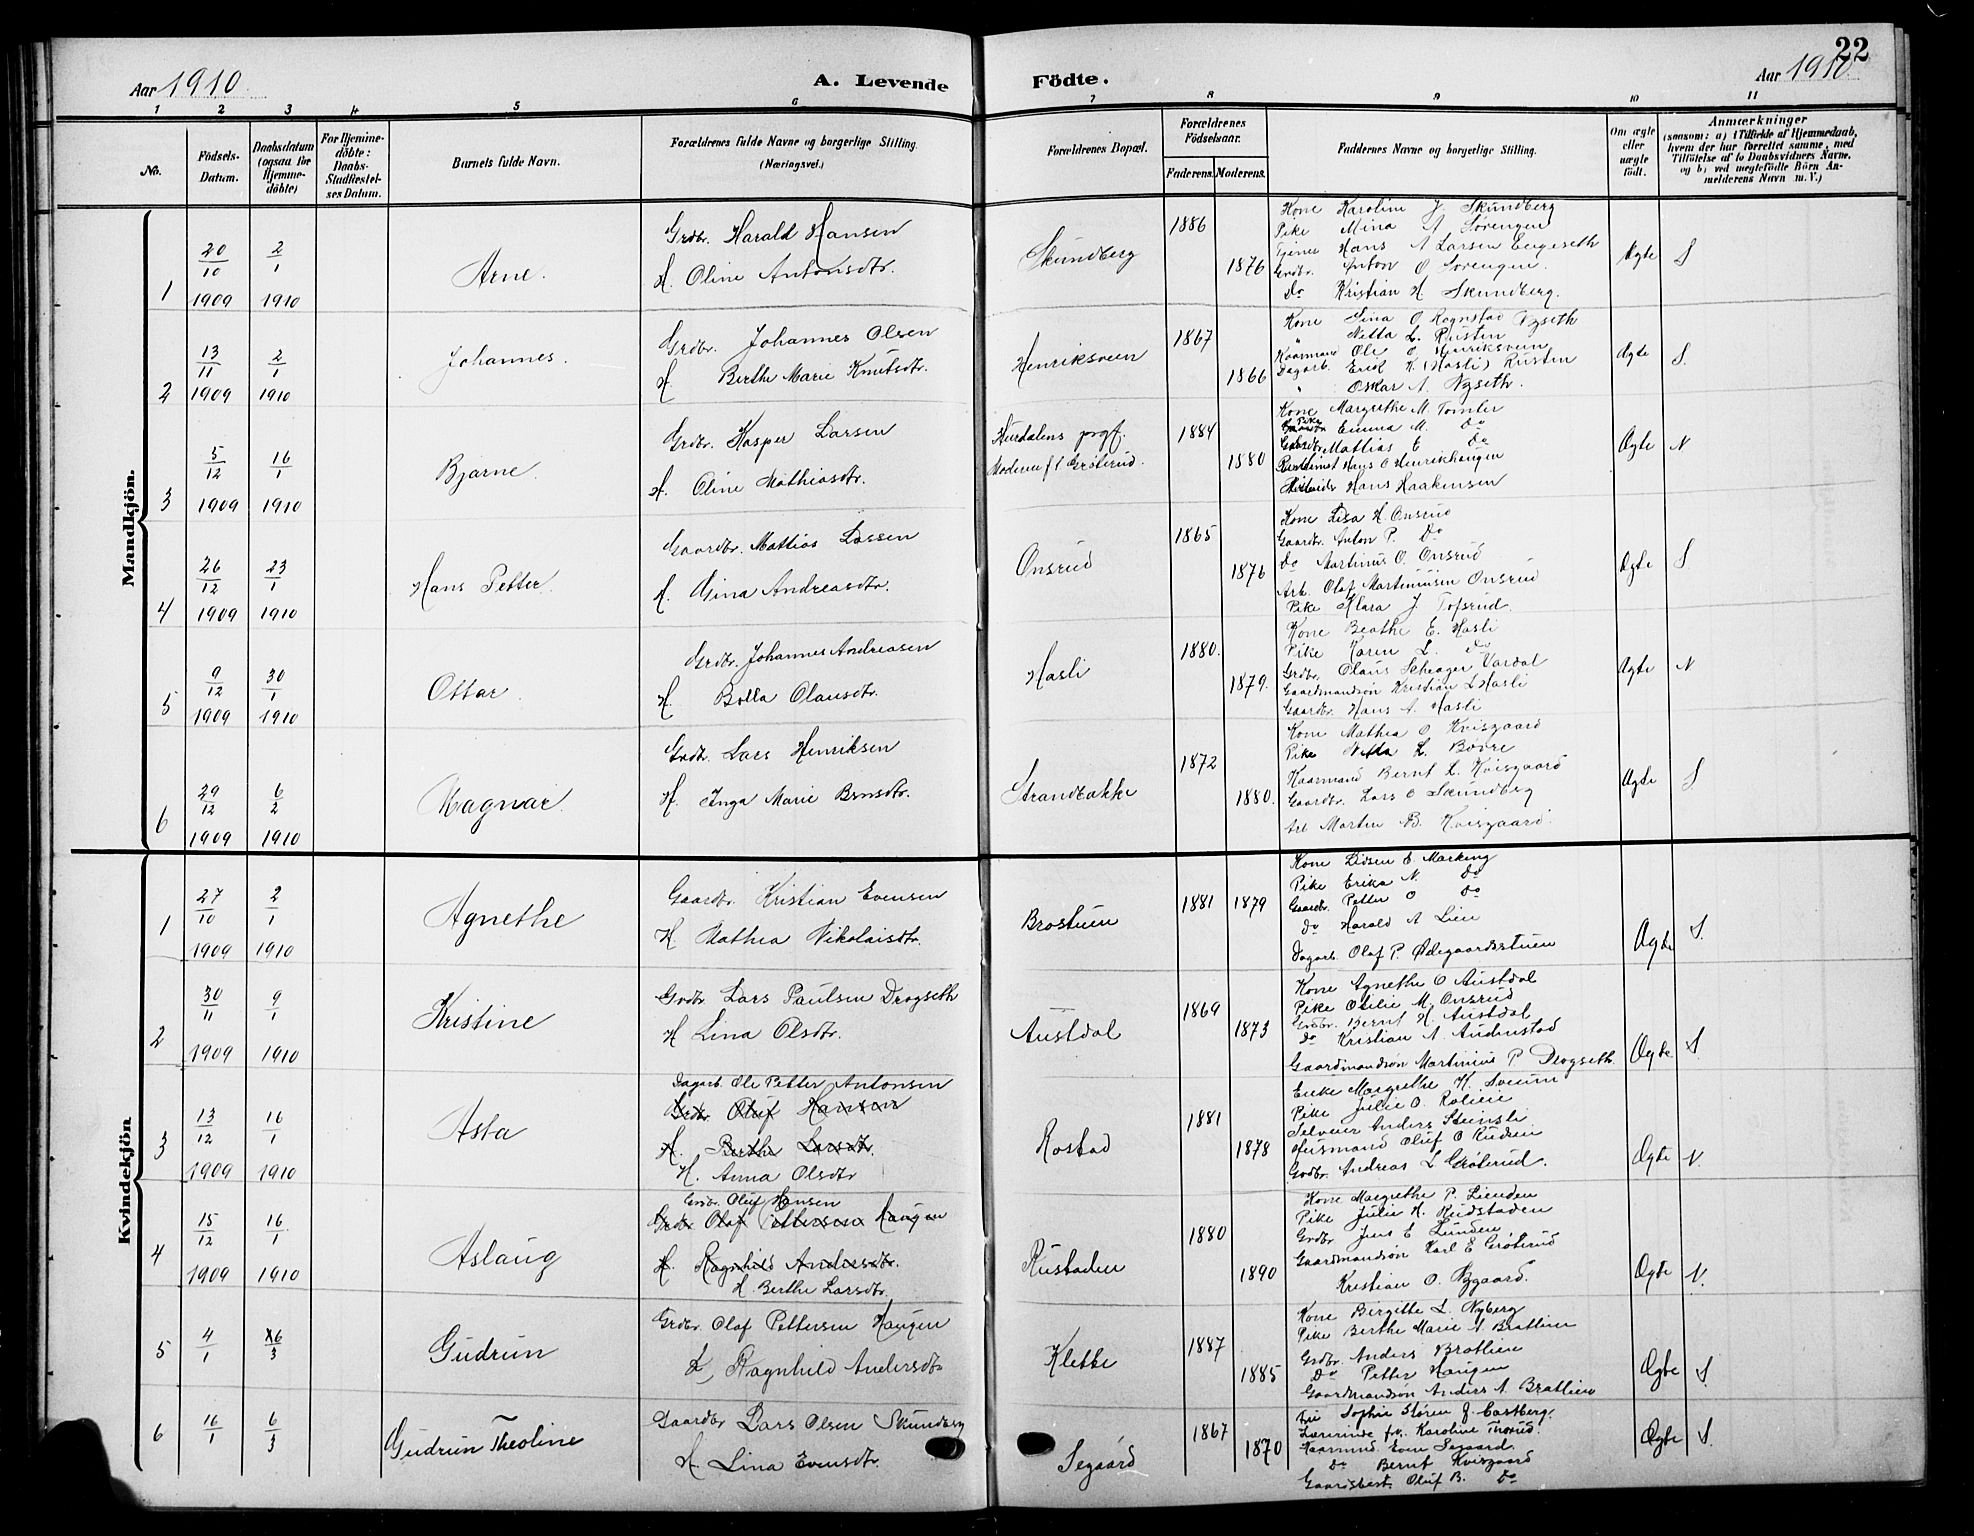 Aar 1910.
A. Levende Födte.
Aar 1910
22
1 2 3 4 5 6 7 8 9 10 11
No.
Födsels-Datum.
Daabsdatum (ogsaa for Hjemmedöbte)
For Hjemmedöbte: Daabs-Stadfæstelses Datum.
Barnets fulde Navn.
Forældrenes fulde Navne og borgerlige Stilling. (Næringsvei.)
Forældrenes Bopæl.
Forældrenes Födselsaar.
Faderens. Moderens.
Faddernes Navne og borgerlige Stilling.
Om ægte eller uægte födt.
Anmærkninger
(saasom: a) i Tilfælde af Hjemmedaab, hvem der har forrettet samme, med Tilföielse af to Daabsvidners Navne, og b) ved uægtefödte Börn Anmelderens Navn m. V.)
Mandkjön.
1
20/10 1909
2/1 1910
Arne.
Grdbr. Harald Hansen
H. Oline Antonsdtr.
Skundberg
1886
1876
Kone Karoline J. Skundberg
Pike Mina A Sorengen
Tjener Hans A Larsen Engeseth
Grdbr. Anton O Sorengen.
Do Kristian H Skundberg.
Ægte
S
2
13/11 1909
2/1 1910
Johannes.
Grdbr. Johannes Olsen
H. Berthe Marie Knutsdtr.
Henriksveen
1867
1866
Kone Sina O Rognstad Nyseth
" Netta L. Rusten
Kaarmand Ole O Henriksveen
Dagarb. Erik K. (Hasli) Rusten
" Oskar A. Nyseth.
Ægte
S.
3
5/12 1909
16/1 1910
Bjarne.
Grdbr. Kasper Larsen
H. Oline Mathiasdtr.
Hurdalens prgf.
Moderen f. i Gröterud.
1884
1880
Kone Margrethe M. Tomter
Pike Emma M. Do
Gaardbr Mathias E Do
Hans O Henrikhaugen
Hans Haakensen
Ægte
N
4
26/12 1909
23/1 1910
Hans Petter.
Gaardbr. Mattias Larsen
H. Gina Andreasdtr.
Onsrud
1865
1876
Kone Lisa H Onsrud
Gaardbr. Anton P. Do
Do Martinus O. Onsrud
Arb. Olaf Martinusen Onsrud
Pike Klara J Tofsrud.
Ægte
S
5
9/12 1909
30/1 1910
Ottar.
Grdbr. Johannes Andreasen
H. Bolla Olausdtr.
Hasli
1880.
1879.
Kone Beathe E. Hasli
Pike Karen L. Do
Grdbr. Olaus Schrager Vardal
Gaardmandsön Kristian L Hasli
Gaardbr. Hans A. Hasli
Ægte
N
6
29/12 1909
6/2 1910
Ragnar.
Grdbr. Lars Henriksen
H. Inga Marie Brnsdtr.
Strandbakke
1872
1880.
Kone Mathea O Kvisgaard
Pike Netta L. Bovre
Kaarmand Bernt L. Kvisgaard
Gaardbr. Lars O Skundberg
Arb Martin B. Kvisgaard.
Ægte
S
Kvindekjön
1
27/10 1909
2/1 1910
Agnethe
Gaardbr. Kristian Evensen
H. Mathea Nikolaisdtr.
Brostuen
1881 1879
Kone Lidsen E. Markeng
Pike Erika N. Do
Gaardbr. Petter O Do
Do Harald A Lien
Dagarb. Olaf P. Ödegaardsstuen
Ægte
S.
2
30/11 1909
9/1 1910
Kristine
Grdbr. Lars Paulsen Drogseth
H Lina Olsdtr.
Austdal
1869
1873
Kone Agnethe O Austdal
Pike Otilie M. Onsrud
Grdbr. Bernt H. Austdal
Do Kristian A. Audenstad
Gaardmandsön Martinius P Drogseth
Ægte
S.
3
13/12 1909
16/1 1910
Asta
Dagarb. Ole Petter Antonsen
Grdbr. Oluf Hansen
H. Berthe Larsdtr.
H. Anna Olsdtr
Rostad
1881
1878
Enke Margrethe H. Sveum
Pike Julie O. Rolieie
Selveier Anders Stensli
Husmand Oluf O Rudsen
Grdbr. Andreas L Gröterud.
Ægte
N.
4
15/12 1909
16/1 1910
Aslaug
Grdbr. Oluf Hansen
Grdbr Olaf Pettersen Haugen
H. Ragnhild Andersdtr.
H. Berthe Larsdtr.
Rustaden
1880
1890
Kone Margrethe P. Lienden
Pike Julie H. Rudstaden
Grdbr. Jens E Lunden
Gaardmandsön Karl E Gröterud
Kristian O. Nygaard.
Ægte
N.
5
4/1
6/3
Gudrun
Grdbr. Olaf Pettersen Haugen
H. Ragnhild Andersdtr
Klette
1887
1885
Kone Birgitte L. Nyberg
Pike Berthe Marie A Bratlien
Grdbr. Anders Bratlien
Do Petter Haugen
Gaardmandsön Anders A. Bratlien
Ægte
S.
6
16/1
6/3
Gudrun Theoline
Gaardbr Lars Olsen Skundberg
H. Lina Evensdtr.
Segaard
1867
1870
Fru Sophie Stören f. Castberg.
Lærerinde frk. Karoline Thorud.
Kaarmnd. Even Segaard.
Do Bernt Kvisgaard
Gaardsbest. Oluf B. Do
Ægte
S.